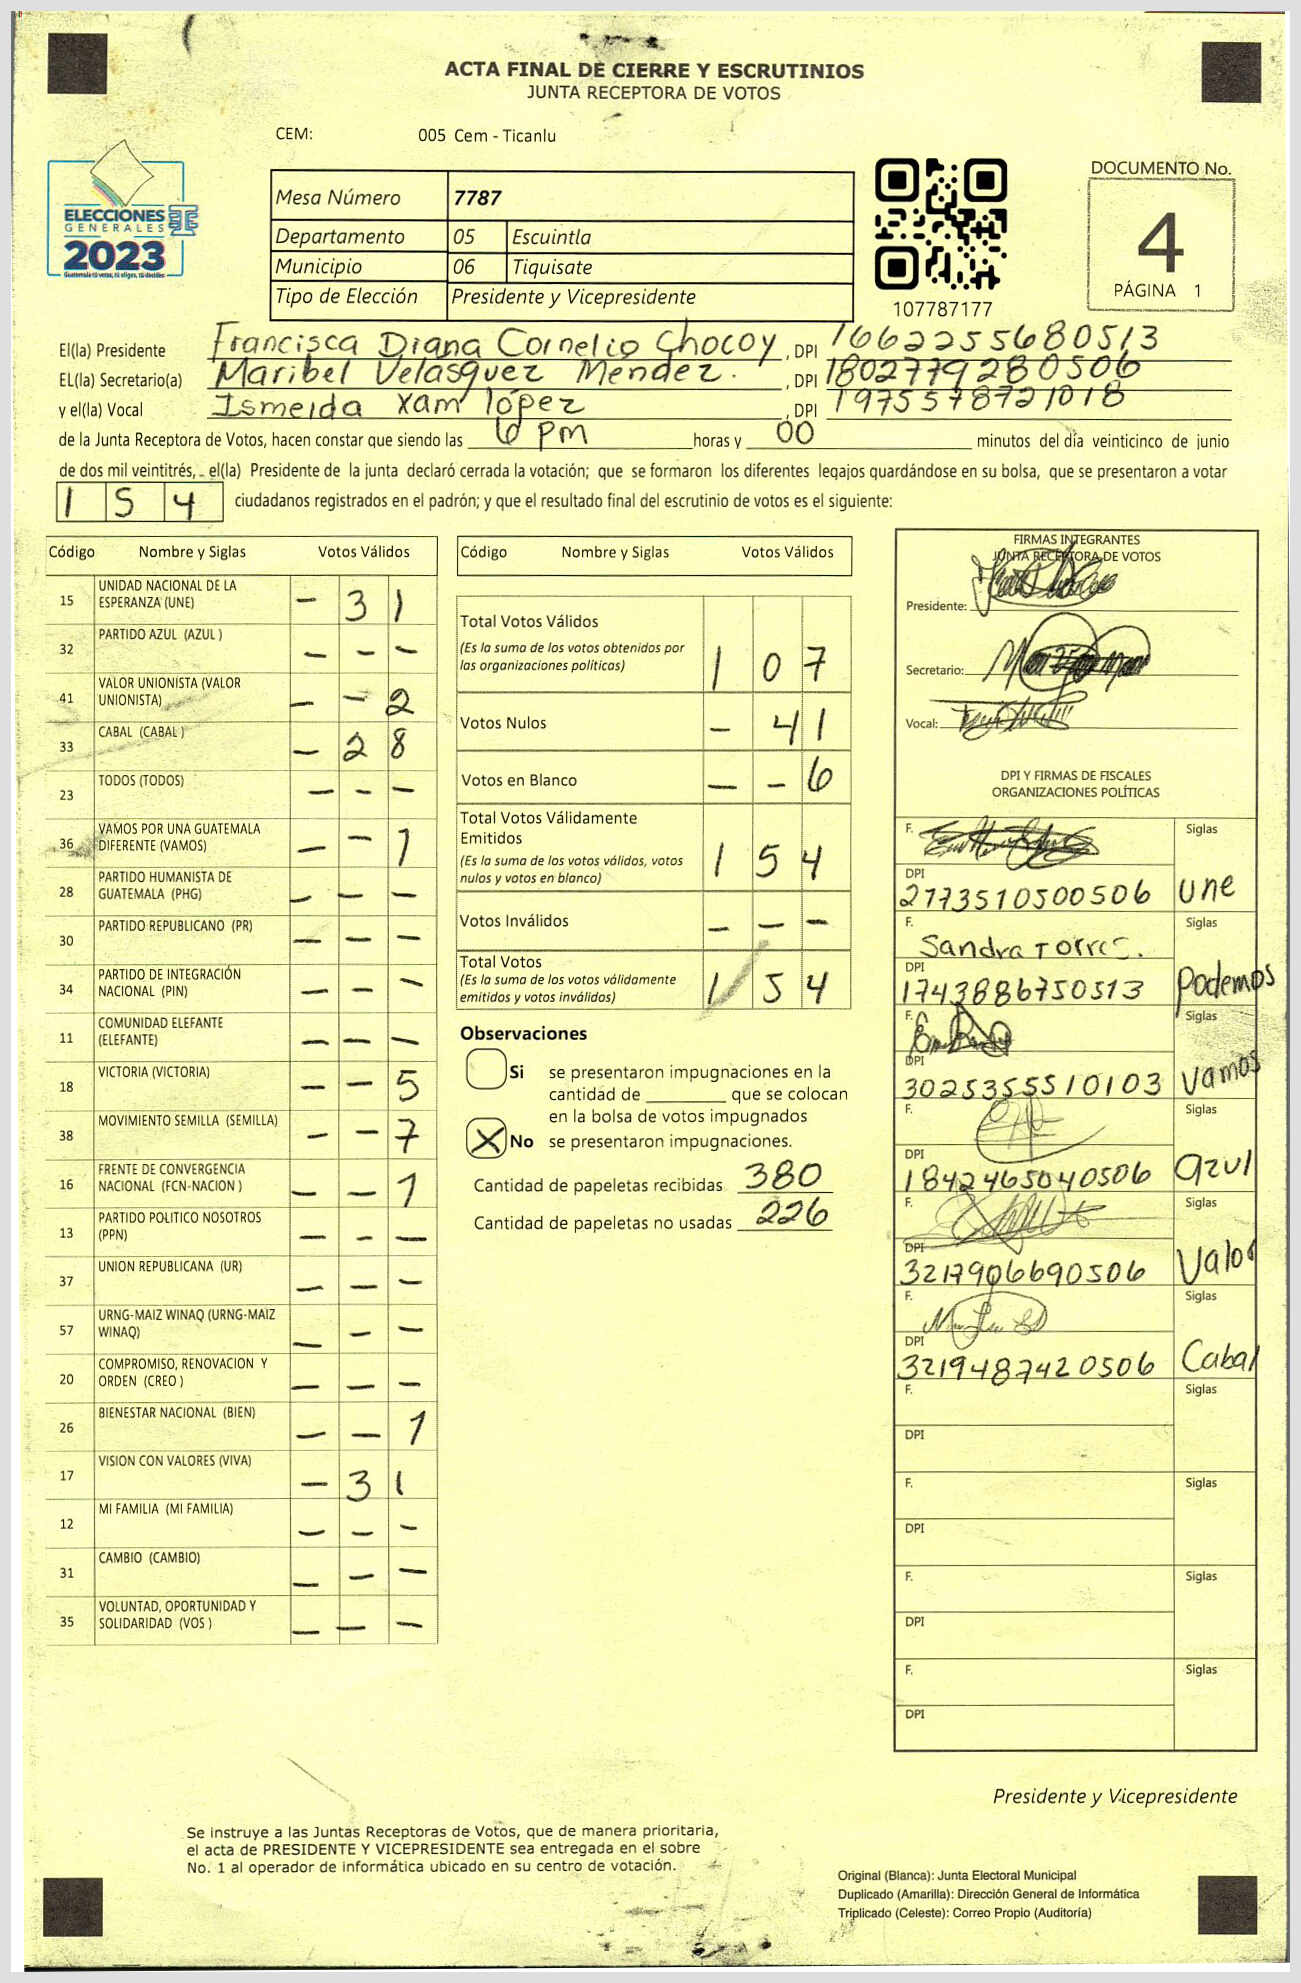 ACTA FINAL DE CIERRE Y ESCRUTINIOS
JUNTA RECEPTORA DE VOTOS
CEM: 005 Cem - Ticanlu
ELECCIONES
GENERALES
2023
Guatemala tú votas, tú eliges, tú decides
Mesa Número 7787
Departamento 05 Escuintla
Municipio 06 Tiquisate
Tipo de Elección Presidente y Vicepresidente
107787177
DOCUMENTO No.
4
PÁGINA 1
El(la) Presidente Francisca Diana Cornelio Chocoy, DPI 1662255680513
EL(la) Secretario(a) Maribel Velasquez Mendez. , DPI 1802779280506
y el(la) Vocal Ismeida Xam lópez , DPI 1975578721018
de la Junta Receptora de Votos, hacen constar que siendo las 6 pm horas y 00 minutos del día veinticinco de junio
de dos mil veintitrés, el(la) Presidente de la junta declaró cerrada la votación; que se formaron los diferentes legajos guardándose en su bolsa, que se presentaron a votar
1 5 4 ciudadanos registrados en el padrón; y que el resultado final del escrutinio de votos es el siguiente:
Código Nombre y Siglas Votos Válidos
15 UNIDAD NACIONAL DE LA
ESPERANZA (UNE) - 3 1
32 PARTIDO AZUL (AZUL ) - - -
41 VALOR UNIONISTA (VALOR
UNIONISTA) - - 2
33 CABAL (CABAL ) - 2 8
23 TODOS (TODOS) - - -
36 VAMOS POR UNA GUATEMALA
DIFERENTE (VAMOS) - - 1
28 PARTIDO HUMANISTA DE
GUATEMALA (PHG) - - -
30 PARTIDO REPUBLICANO (PR) - - -
34 PARTIDO DE INTEGRACIÓN
NACIONAL (PIN) - - -
11 COMUNIDAD ELEFANTE
(ELEFANTE) - - -
18 VICTORIA (VICTORIA) - - 5
38 MOVIMIENTO SEMILLA (SEMILLA) - - 7
16 FRENTE DE CONVERGENCIA
NACIONAL (FCN-NACION ) - - 1
13 PARTIDO POLITICO NOSOTROS
(PPN) - - -
37 UNION REPUBLICANA (UR) - - -
57 URNG-MAIZ WINAQ (URNG-MAIZ
WINAQ) - - -
20 COMPROMISO, RENOVACION Y
ORDEN (CREO ) - - -
26 BIENESTAR NACIONAL (BIEN) - - 1
17 VISION CON VALORES (VIVA) - 3 1
12 MI FAMILIA (MI FAMILIA) - - -
31 CAMBIO (CAMBIO) - - -
35 VOLUNTAD, OPORTUNIDAD Y
SOLIDARIDAD (VOS ) - - -
Código Nombre y Siglas Votos Válidos
Total Votos Válidos
(Es la suma de los votos obtenidos por
las organizaciones políticas) 1 0 7
Votos Nulos - 4 1
Votos en Blanco - - 6
Total Votos Válidamente
Emitidos
(Es la suma de los votos válidos, votos
nulos y votos en blanco) 1 5 4
Votos Inválidos - - -
Total Votos
(Es la suma de los votos válidamente
emitidos y votos inválidos) 1 5 4
Observaciones
Si se presentaron impugnaciones en la
cantidad de ________ que se colocan
en la bolsa de votos impugnados
X No se presentaron impugnaciones.
Cantidad de papeletas recibidas 380
Cantidad de papeletas no usadas 226
FIRMAS INTEGRANTES
JUNTA RECEPTORA DE VOTOS
Presidente:
Secretario:
Vocal:
DPI Y FIRMAS DE FISCALES
ORGANIZACIONES POLÍTICAS
F. Siglas
DPI
2773510500506 une
F. Sandra Torres. Siglas
DPI
1743886750513 Podemos
F. Siglas
DPI
3025355510103 Vamos
F. Siglas
DPI
1842465040506 azul
F. Siglas
DPI
3217906690506 Valor
F. Siglas
DPI
3219487420506 Cabal
F. Siglas
DPI
F. Siglas
DPI
F. Siglas
DPI
F. Siglas
DPI
Presidente y Vicepresidente
Se instruye a las Juntas Receptoras de Votos, que de manera prioritaria,
el acta de PRESIDENTE Y VICEPRESIDENTE sea entregada en el sobre
No. 1 al operador de informática ubicado en su centro de votación.
Original (Blanca): Junta Electoral Municipal
Duplicado (Amarilla): Dirección General de Informática
Triplicado (Celeste): Correo Propio (Auditoría)